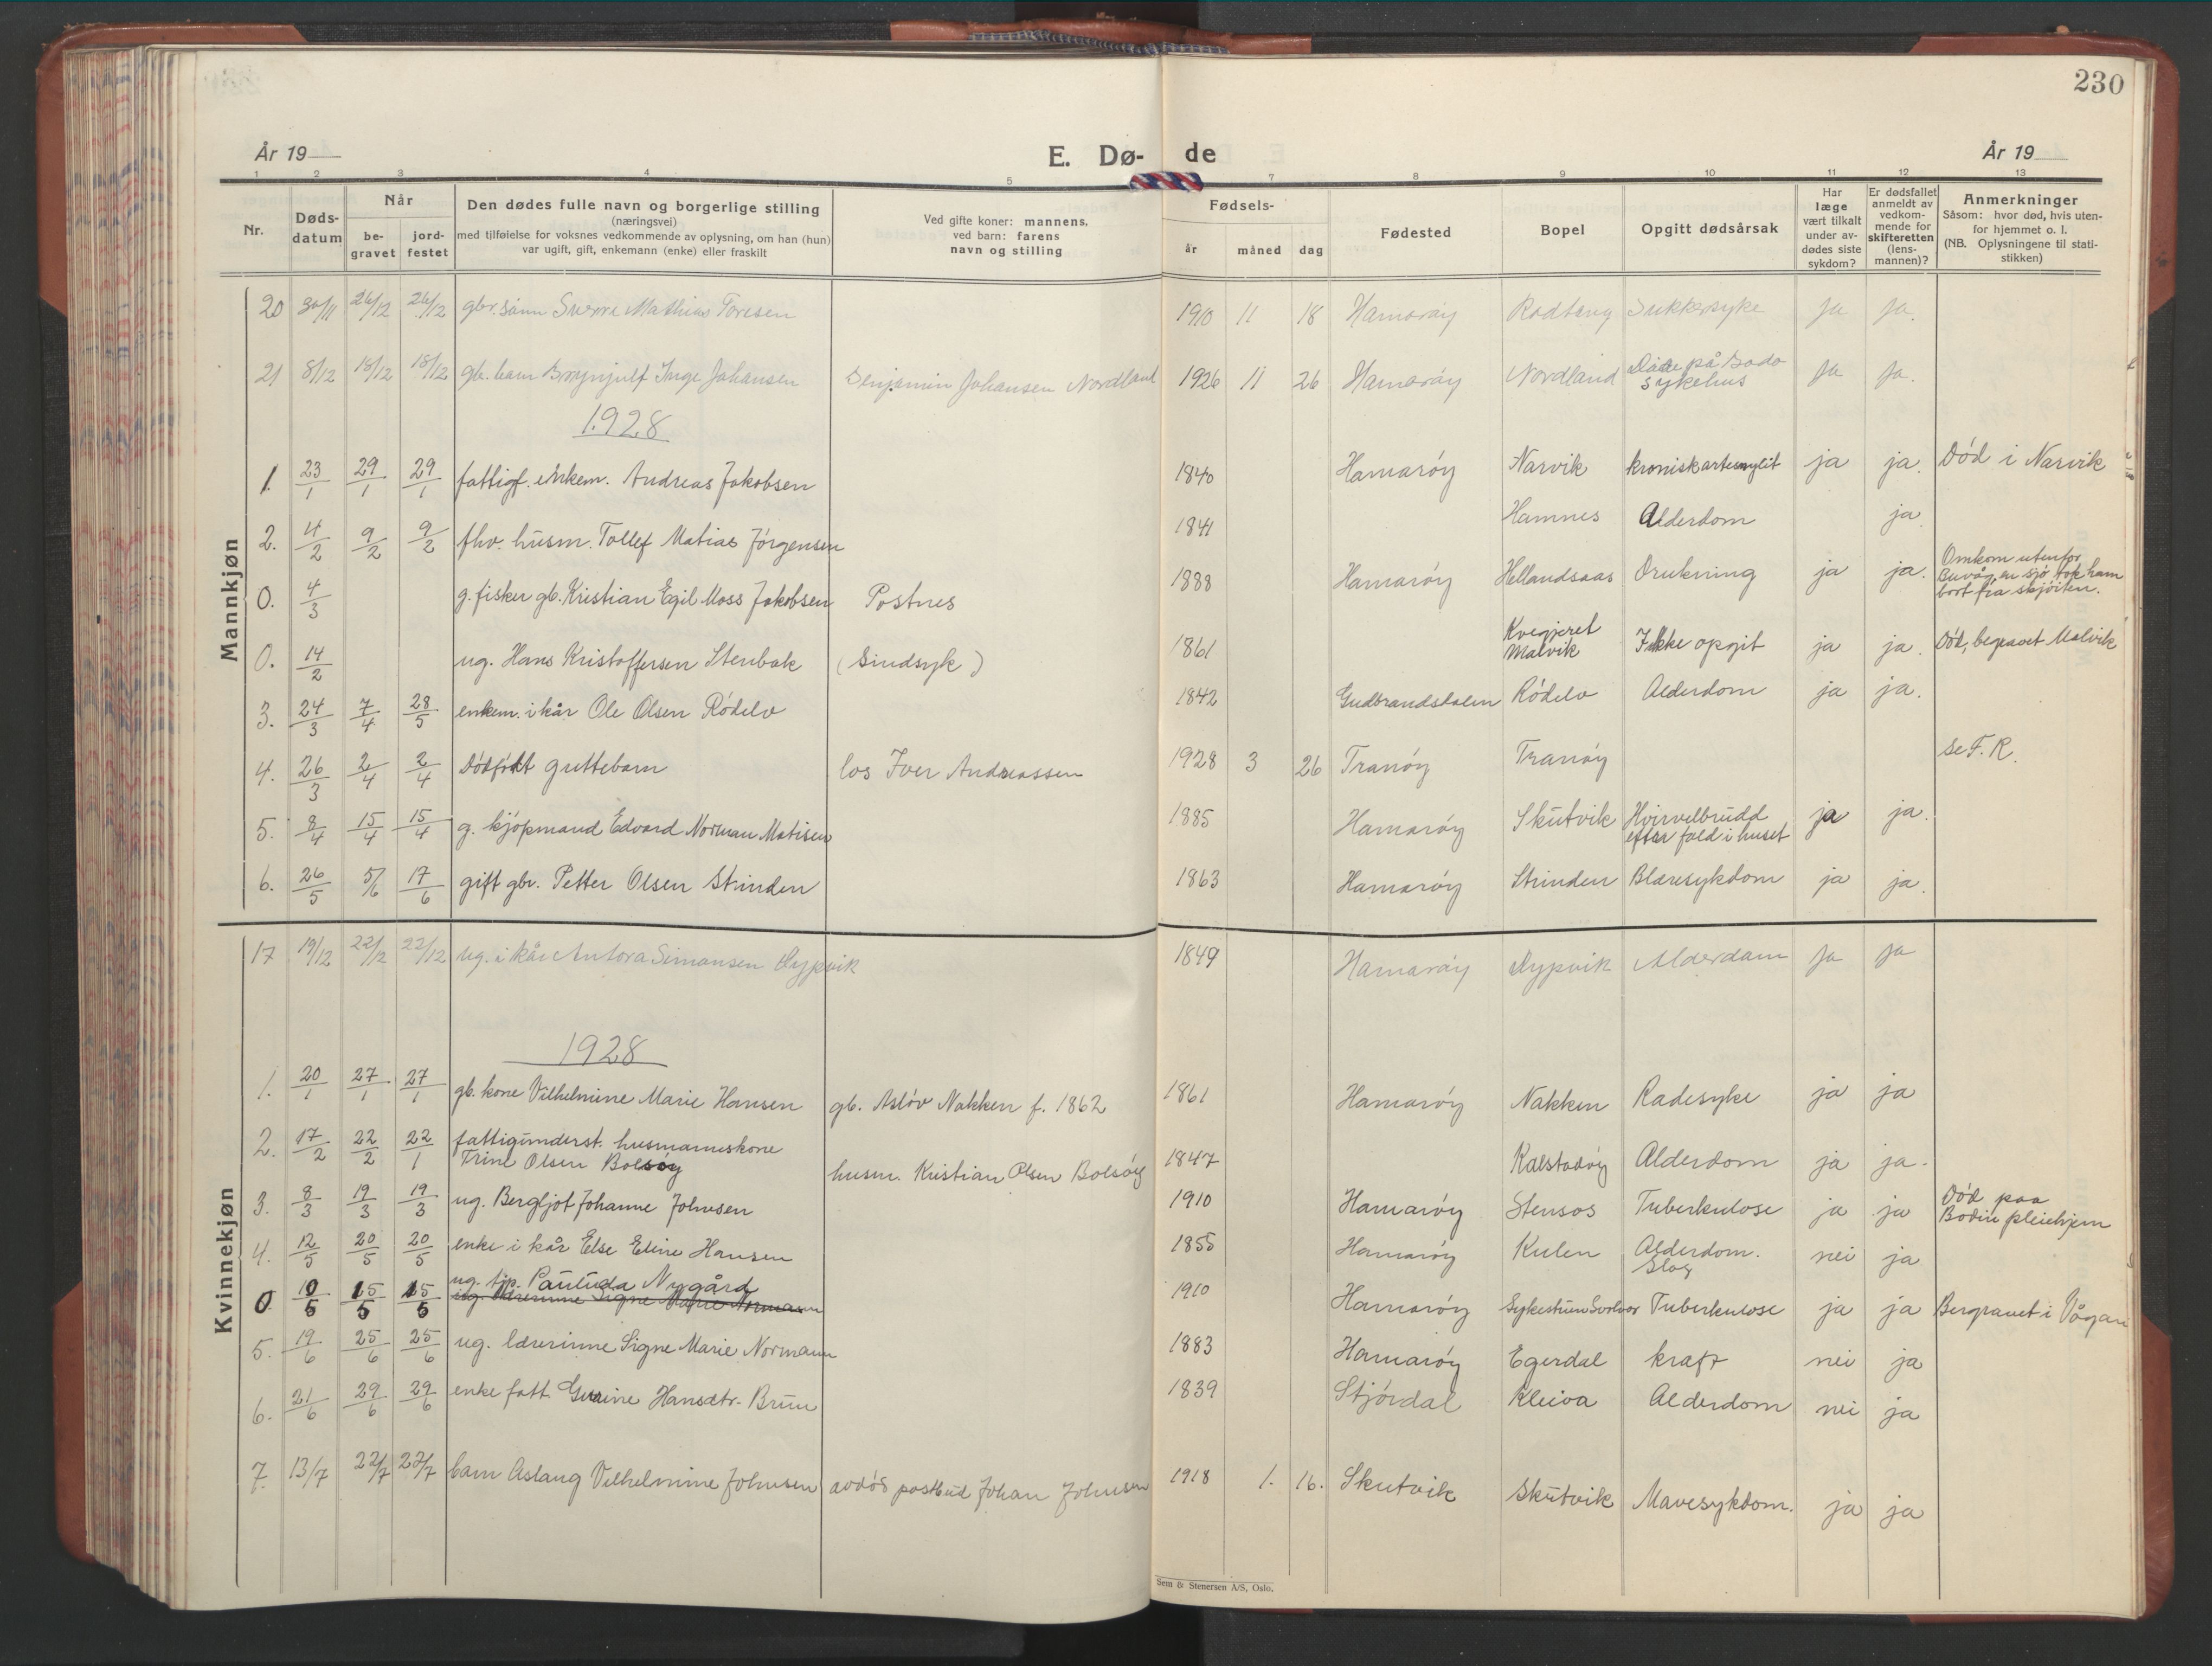 230
År 19
E. Dø-
de
År 19
1 2 3 4 5 7 8 9 10 11 12 13
Nr.
Døds-
datum
Når
be-
gravet
jord-
festet
Den dødes fulle navn og borgerlige stilling
(næringsvei)
med tilføielse for voksnes vedkommende av oplysning, om han (hun)
var ugift, gift, enkemann (enke) eller fraskilt
Ved gifte koner: mannens,
ved barn: farens
navn og stilling
Fødsels-
år måned dag
Fødested
Bopel
Opgitt dødsårsak
Har
læge
vært tilkalt
under av-
dødes siste
sykdom?
Er dødsfallet
anmeldt av
vedkom-
mende for
skifteretten
(lens-
mannen)?
Anmerkninger
Såsom: hvor død, hvis uten-
for hjemmet o. l.
(NB. Oplysningene til stati-
stikken)
Mannkjøn
20 30/11 26/12 26/12 gbr. sønn Sverre Mathias Toresen 1910 11 18 Hamarøy Rødtang Sukkersyke Ja Ja.
21 8/12 18/12 18/12 gb. barn Brynjulf Inge Johansen Benjamin Johansen Nordland 1926 11 26 Hamarøy Nordland Døde på Bodø
sykehus Ja Ja.
1928
1. 23/1 29/1 29/1 fattigf. enkem. Andreas Jakobsen 1840 Hamarøy Narvik kronisk ja ja. Død i Narvik
2. 4/2 9/2 9/2 fhv. husm. Tollef Matias Jørgensen 1841 Hamnes Alderdom ja.
0. 4/3 g. fisker gb. Kristian Egil Moss Jakobsen Postnes 1888 Hamarøy Hellandsaas Drukning ja ja. Omkom utenfor
en sjø tok ham
bort fra skjøiten.
0. 14/2 ug. Hans Kristoffersen Stenbak (Sindsyk) 1861 Kvegjeret
Malvik Ikke opgit ja ja. Død, begravet Malvik
3. 24/3 7/4 28/5 enkem. i kår Ole Olsen Rødelv 1842 Gudbrandsdalen Rødelv Alderdom ja ja.
4. 26/3 2/4 2/4 Dødfødt guttebarn los Iver Andreassen 1928 3 26 Tranøy Tranøy se F. R.
5. 8/4 15/4 15/4 g. kjøpmand Edvard Norman Matisen 1885 Hamarøy Skutvik Hvirvelbrudd
efter fald i huset ja ja.
6. 26/5 5/6 17/6 gift gbr. Petter Olsen Strinden 1863 Hamarøy Strinden Blæresykdom ja ja.
Kvinnekjøn
17 19/12 22/12 22/12 ug. i kår Antora Simonsen Nypvik 1849 Hamarøy Nypvik Alderdom Ja Ja
1928
1. 20/1 27/1 27/1 gb. kone Vilhelmine Marie Hansen gb. Asløv Nakken f. 1862 1861 Hamarøy Nakken Radesyke ja ja
2. 17/2 22/2 22/1 fattigunderst. husmannskone
Trine Olsen Bolsøy husm. Kristian Olsen Bolsøy 1847 Kalstadøy Alderdom ja ja.
3. 8/3 19/3 19/3 ug. Bergljot Johanne Johnsen 1910 Hamarøy Stensos Tuberkulose ja ja Død paa
Bodin pleiehjem
4. 12/5 20/5 20/5 enke i kår Else Eline Hansen 1855 Hamarøy Kulen Alderdom.
Slag nei ja
0 10/5 15/5 15/5 ug. tjp. Pauluda Nygård
ug. lærerinne Signe Marie Normann 1910 Hamarøy Sykestuen Svolvær Tuberkulose ja ja Bergravet i Vågan
5. 19/6 25/6 25/6 ug. lærerinne Signe Marie Normann 1883 Hamarøy Egerdal kræft nei ja
6. 21/6 29/6 29/6 enke fatt. Hansdtr. Brun 1839 Stjørdal Kleiva Alderdom nei ja
7. 13/7 22/7 22/7 barn Aslaug Vilhelmine Johnsen avdød postbud Johan Johnsen 1918 1. 16. Skutvik Skutvik Mavesykdom. ja ja
Sem & Stenersen A/S, Oslo.